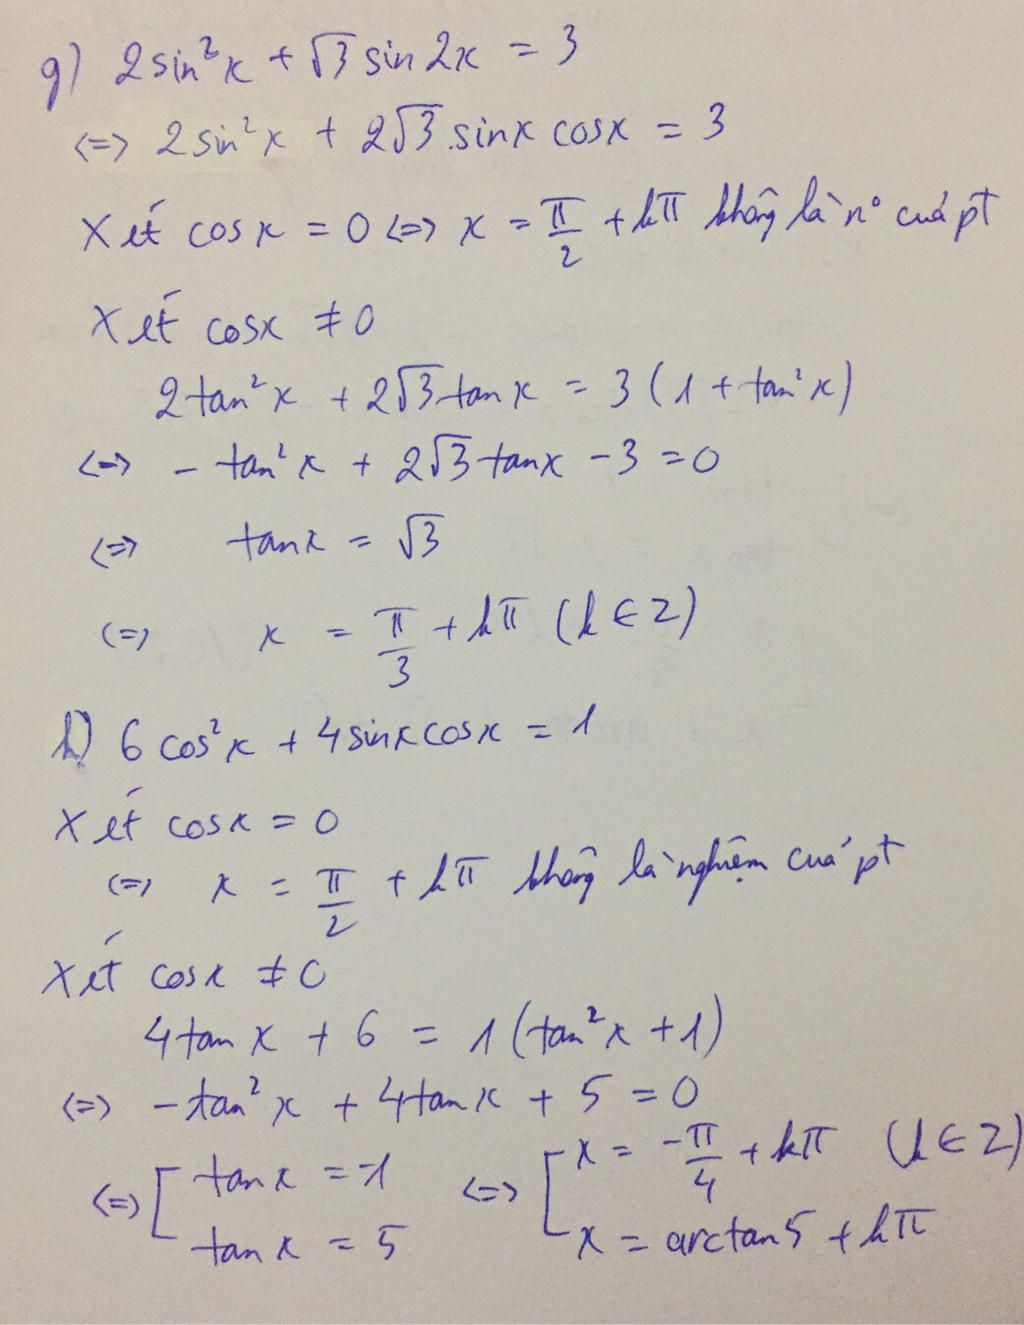 g) 2sin²x + √3 sin 2x = 3
<=> 2sin²x + 2√3.sinx cosx = 3
Xét cosx = 0 <=> x = π/2 + kπ không là n° của pt
Xét cosx ≠ 0
2tan²x + 2√3 tanx = 3(1 + tan²x)
<=> - tan²x + 2√3 tanx - 3 = 0
<=> tanx = √3
<=> x = π/3 + kπ (k ∈ Z)
h) 6cos²x + 4sinxcosx = 1
Xét cosx = 0
<=> x = π/2 + kπ không là nghiệm của pt
Xét cosx ≠ 0
4tanx + 6 = 1(tan²x + 1)
<=> -tan²x + 4tanx + 5 = 0
<=> [ tanx = -1 <=> [ x = -π/4 + kπ (k ∈ Z)
tanx = 5 x = arctan5 + kπ